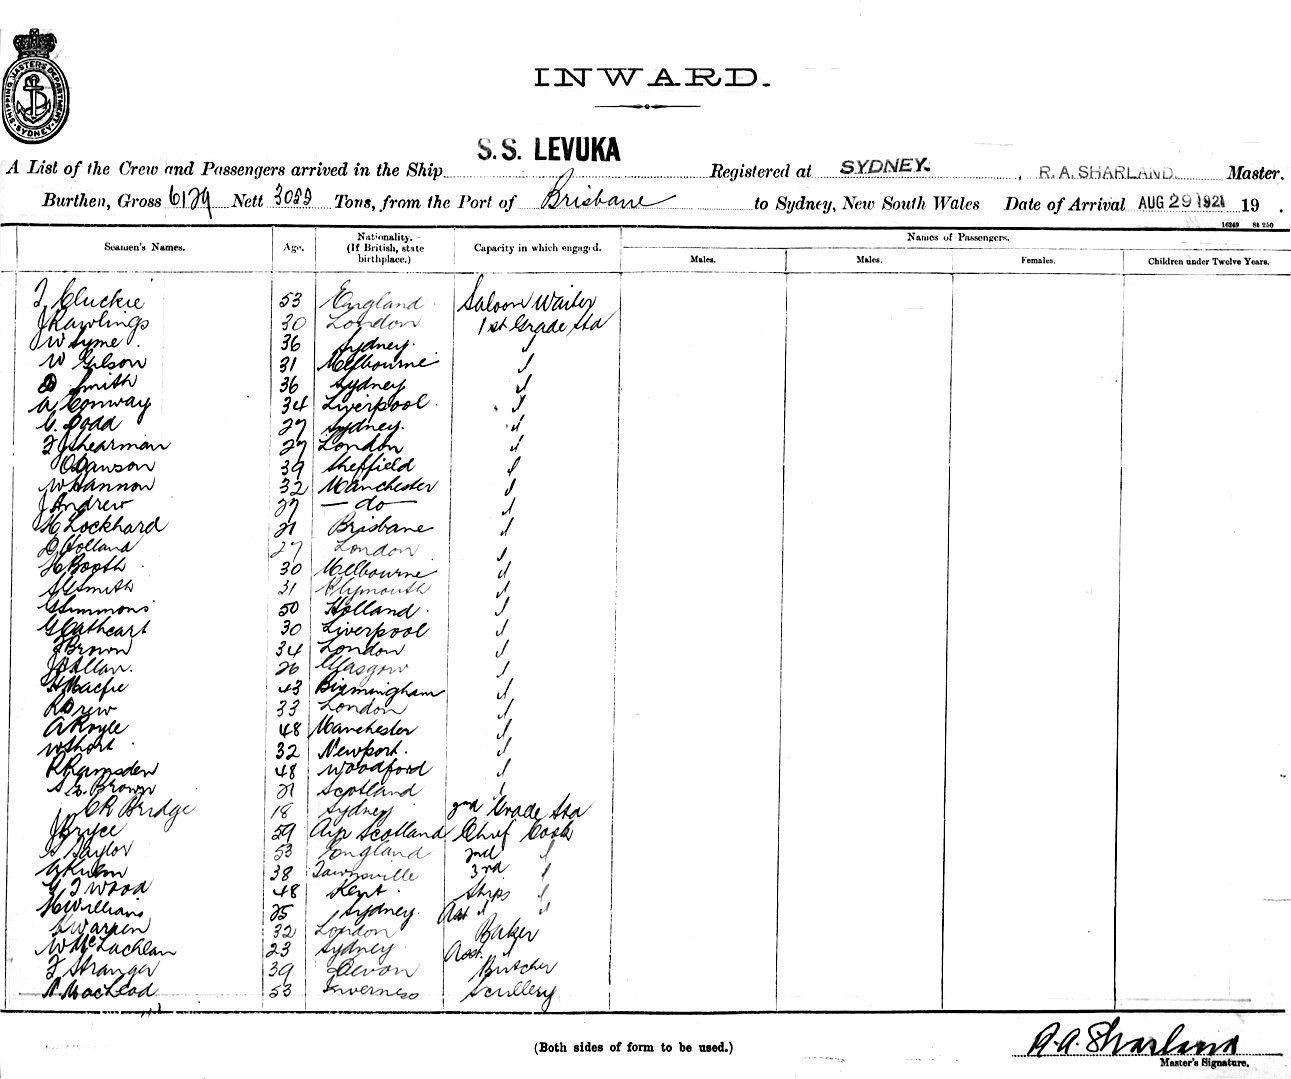 SHIPPING MASTERS DEPARTMENT
SYDNEY
INWARD.
A List of the Crew and Passengers arrived in the Ship S.S. LEVUKA Registered at SYDNEY. , R.A. SHARLAND. Master.
Burthen, Gross 6129 Nett Tons, from the Port of Brisbane to Sydney, New South Wales Date of Arrival AUG 29 1921 19 .
16269 St 250
Seamen's Names. Age. Nationality. (If British, state birthplace.) Capacity in which engaged. Names of Passengers.
Males. Males. Females. Children under Twelve Years.
Cluckie 53 England Saloon Waiter
J Rawlings 30 London 1st Grade Std
W Syme. 36 Sydney. "
W Gilson 31 Melbourne "
Smith 36 Sydney "
A Conway 34 Liverpool. "
C. Dodd 27 Sydney. "
Shearman 27 London "
Dawson 39 Sheffield "
W Hannon 32 Manchester "
J Andrew 27 — do — "
H Lockhard 21 Brisbane "
D Holland 27 London "
H Booth 30 Melbourne "
Smith 31 Plymouth "
G Simmons 50 Holland. "
G Cathcart 30 Liverpool "
J Brown 34 London "
J Allan. 26 Glasgow "
H Macfie 43 Birmingham "
R Drew 33 London "
A Royle 48 Manchester "
W Short 32 Newport. "
R Ramsden 48 Woodford "
Brown 21 Scotland "
C R Bridge 18 Sydney 2nd Grade Std
J Bryce 59 Scotland Chief Cook
Taylor 53 England 2nd "
38 Townsville 3rd "
Wood 48 Kent. Ships "
H Williams 25 Sydney. Asst " "
Warren 32 London Baker
W McLachlan 23 Sydney Asst.
F Stranger 39 Devon Butcher
N MacLeod 53 Inverness Scullery
(Both sides of form to be used.)
R. A. Sharland
Master's Signature.